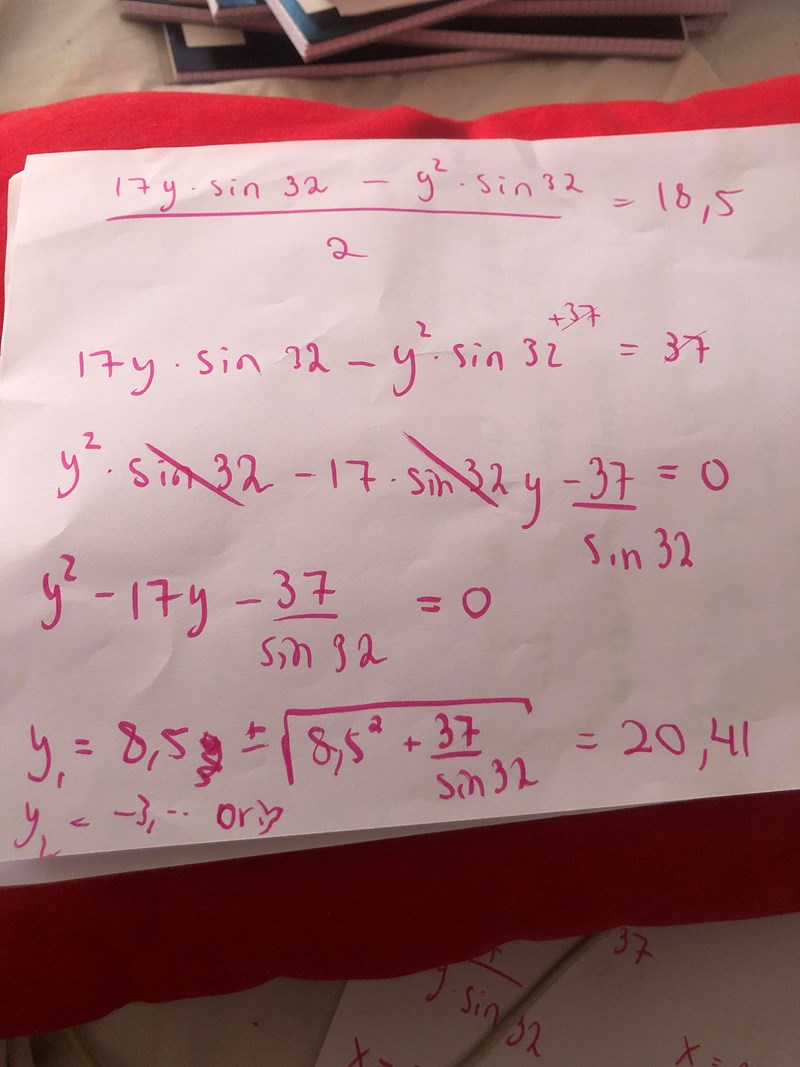 17y · sin 32 − y² · sin 32 = 18,5
2
17y · sin 32 − y² · sin 32 +37 = 37
y² · sin 32 − 17 · sin 32 y − 37 = 0
sin 32
y² − 17y − 37 = 0
sin 32
y₁ = 8,5 ± √8,5² + 37 = 20,41
sin 32
y₂ = −3,...
37
y · sin 32
x
x =